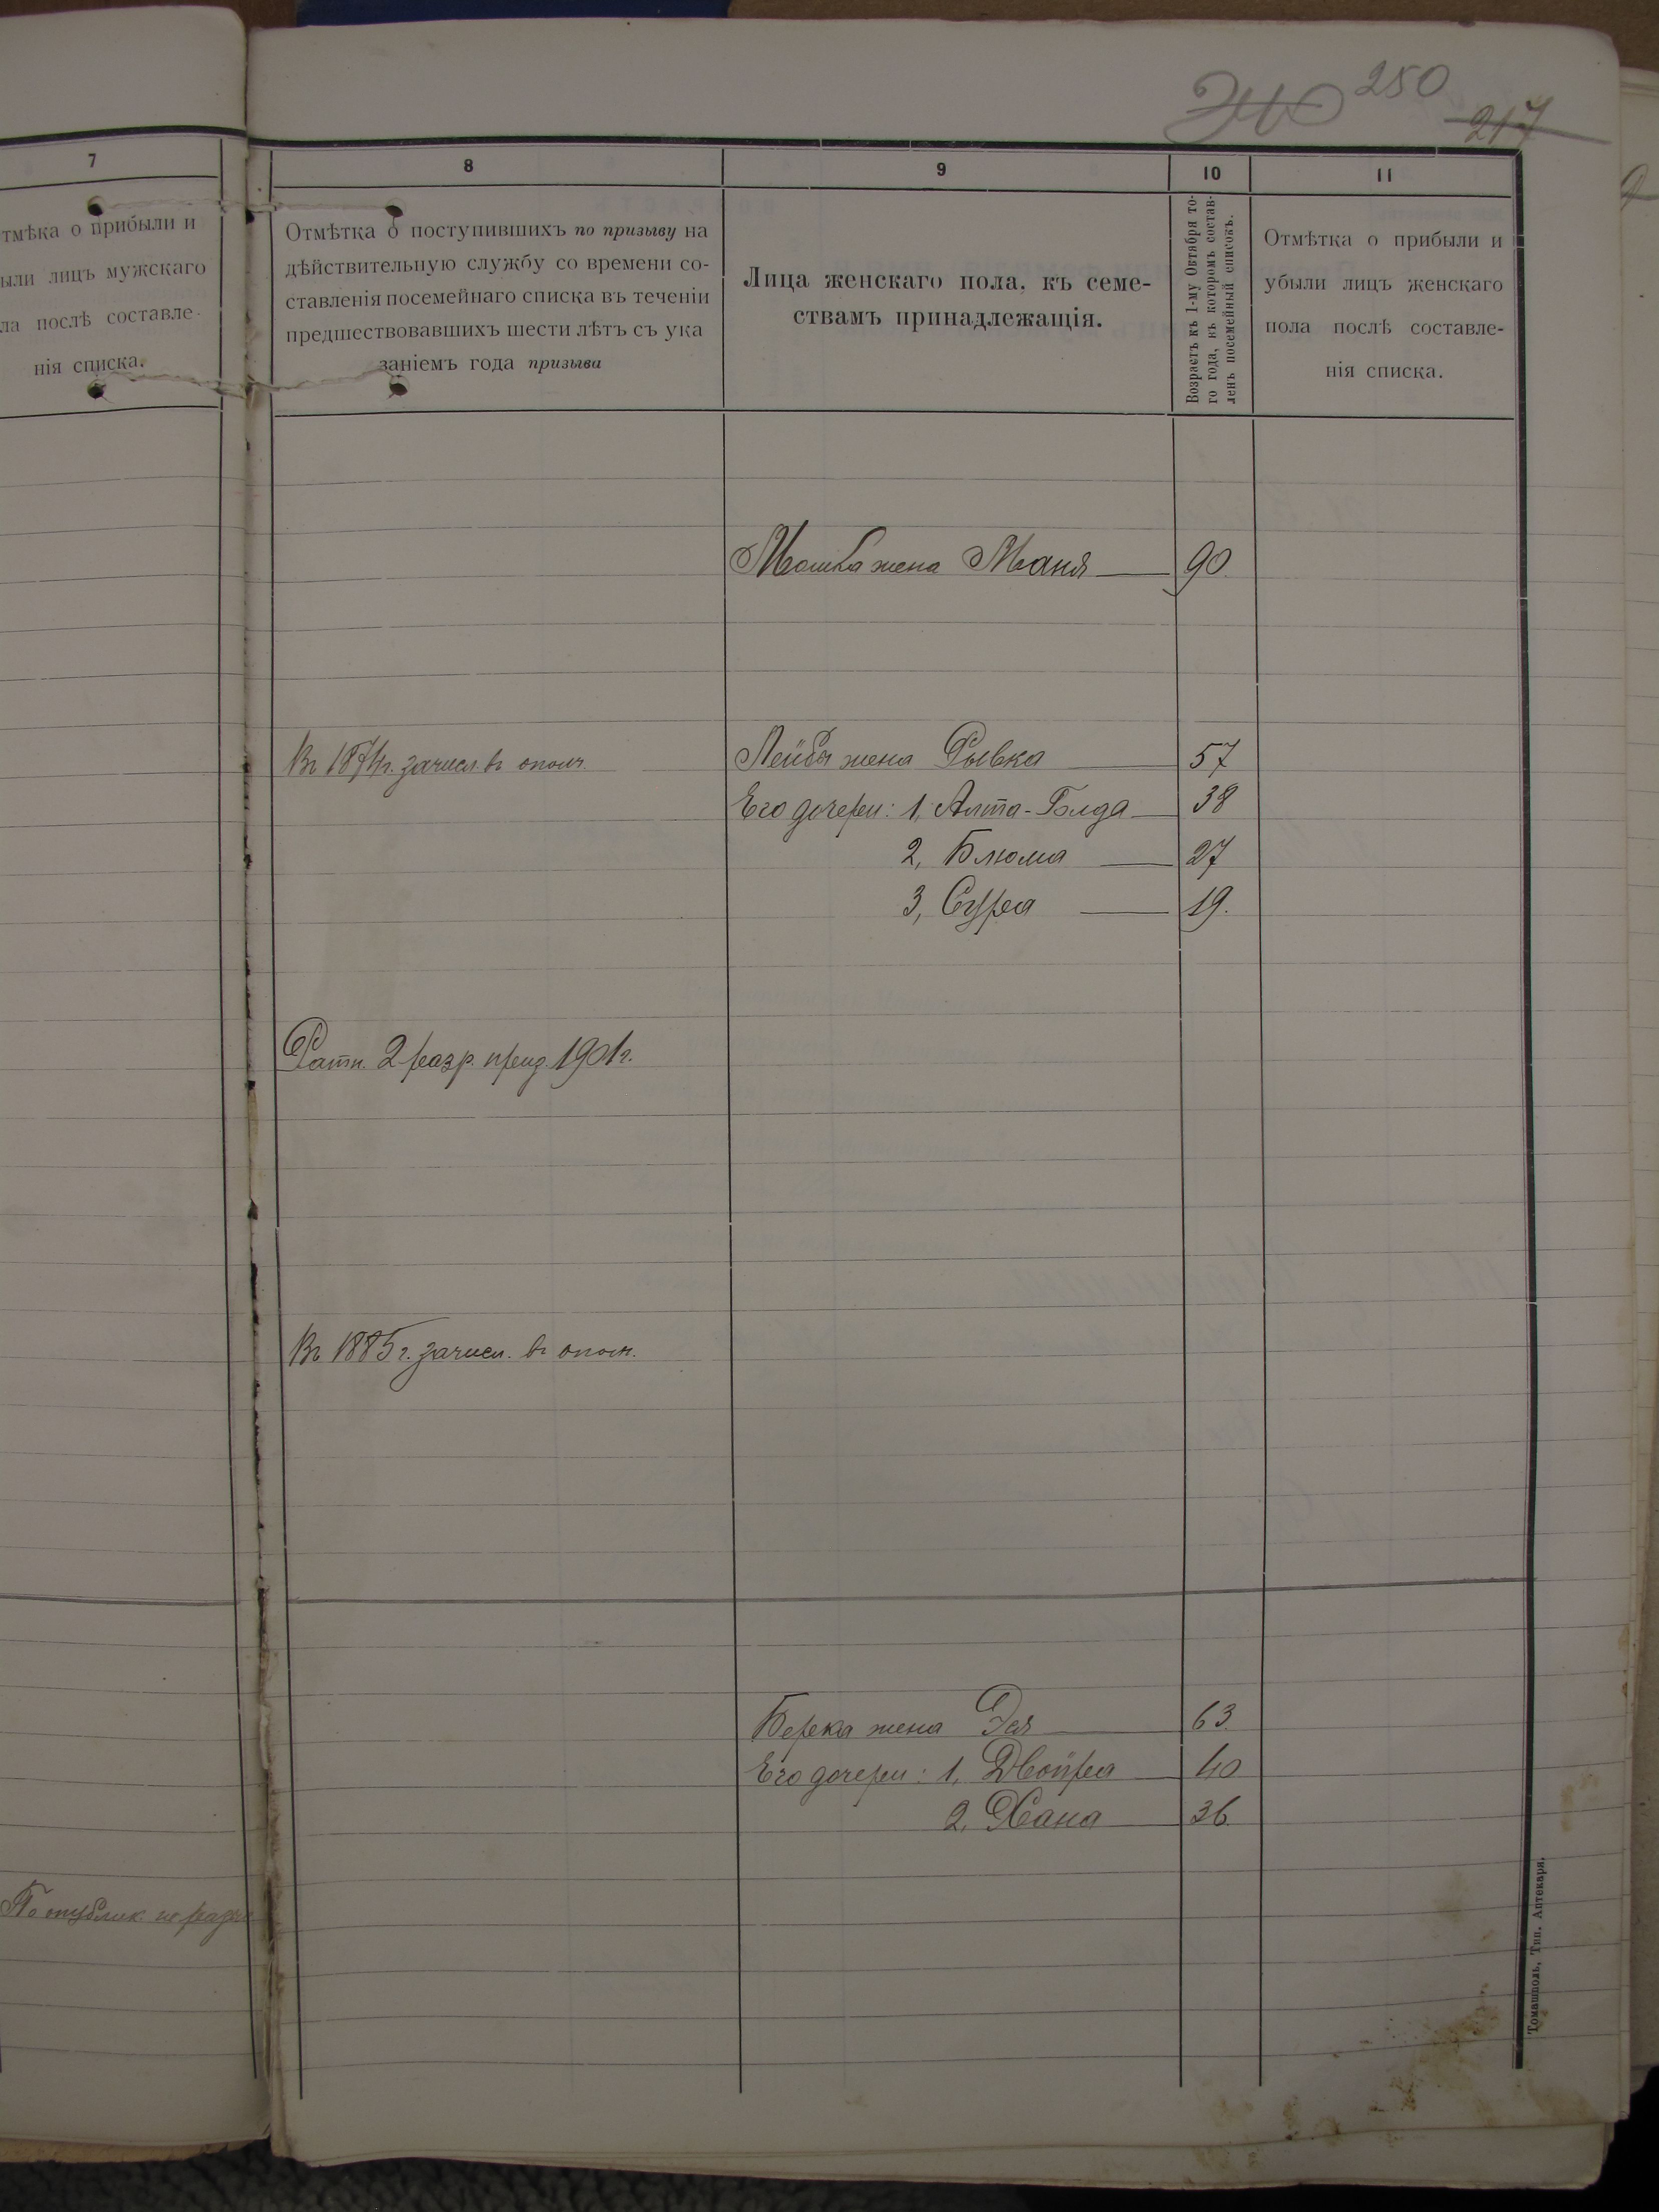 250
217
7
8
9
10
11
тмѣка о прибыли и
ыли лицъ мужскаго
ла послѣ составле-
нія списка.
Отмѣтка о поступившихъ по призыву на
дѣйствительную службу со времени со-
ставленія посемейнаго списка въ теченіи
предшествовавшихъ шести лѣтъ съ ука
заніемъ года призыва
Лица женскаго пола, къ семе-
ствамъ принадлежащія.
Возрастъ къ 1-му Октября то-
го года, къ которомъ состав-
ленъ посемейный списокъ.
Отмѣтка о прибыли и
убыли лицъ женскаго
пола послѣ составле-
нія списка.
Мошка жена Маня 90
Въ 1874 г. зачисл. въ ополч. Лейбы жена Рывка 57
Его дочери: 1, Алта-Голда 38
2, Блюма 27
3, Сура 19.
Ратн. 2 разр. приз. 1901 г.
Въ 1885 г. зачисл. въ ополч.
Берка жена Эся 63.
Его дочери: 1, Двойра 40
2, Хана 36.
Томашполь, Тип. Аптекаря.